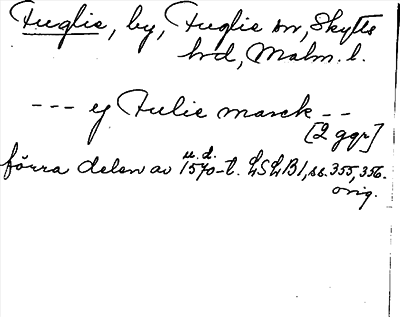 Fuglie, by, Fuglie sn, Skytts
hd, Malm. l.
--- ej Fulie marck --
[2 ggr]
u. d.
förra delen av 1570-t. LSLB1, ss. 355, 356.
orig.